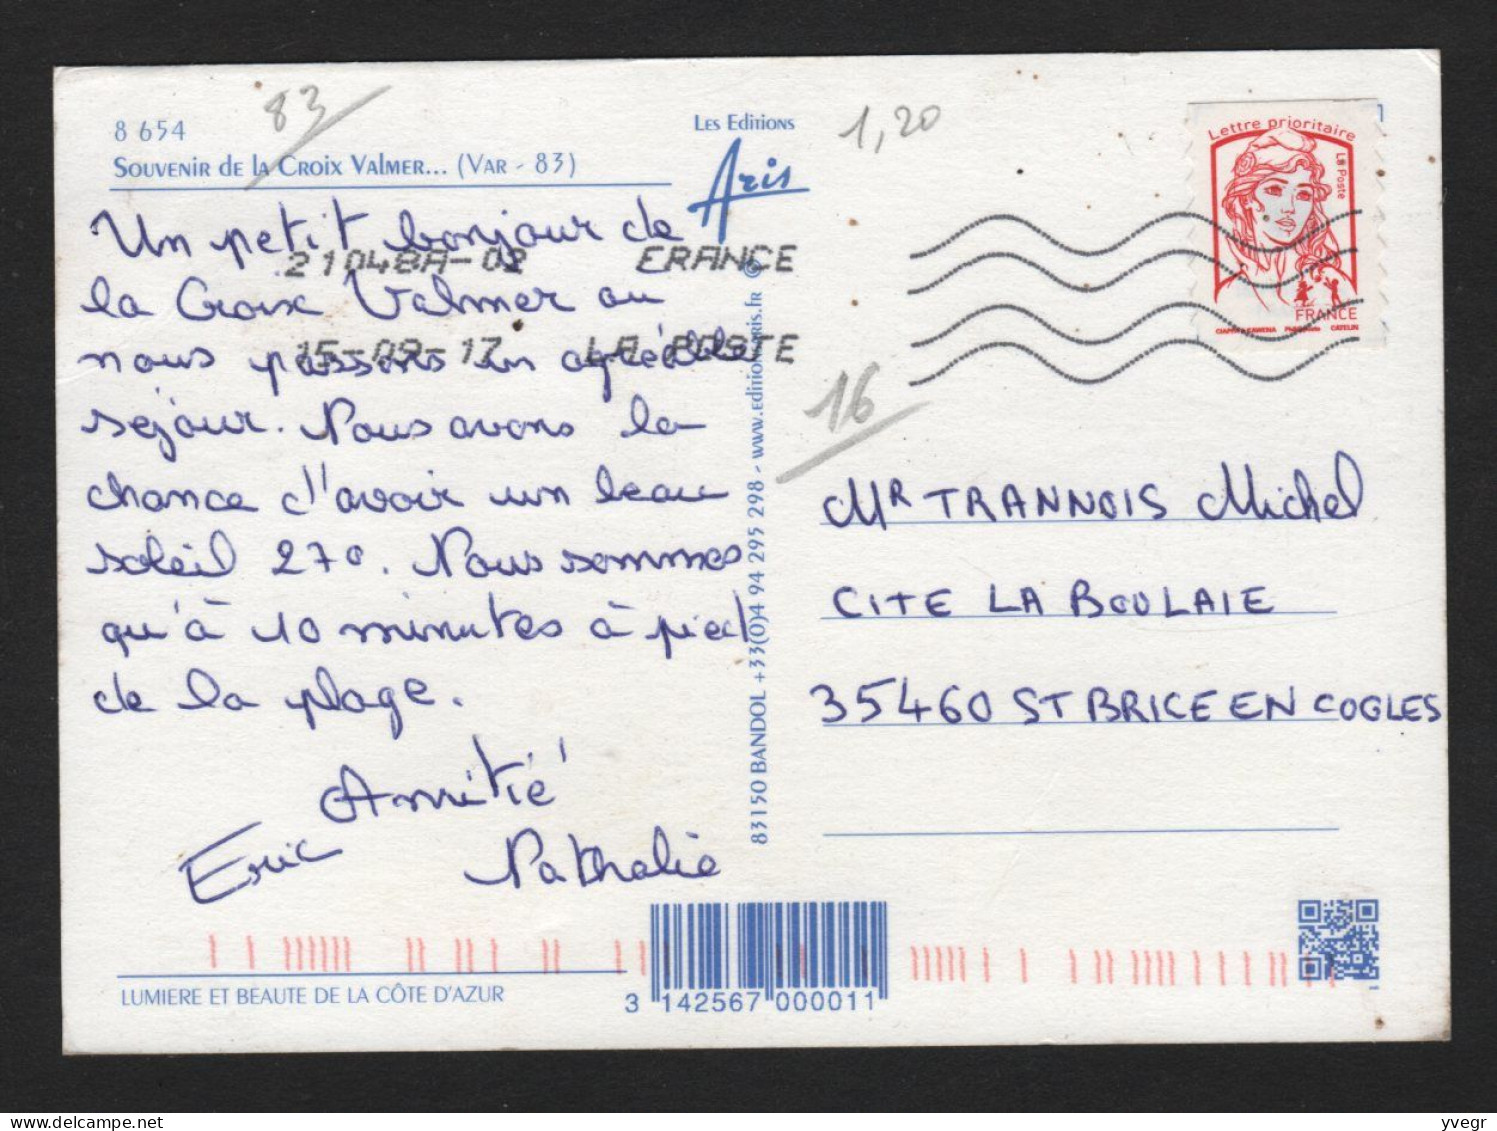 8 654
Souvenir de la Croix Valmer... (Var - 83)
83
Les Editions
Aris
1,20
Lettre prioritaire
La Poste
FRANCE
CIAPPA KAWENA Phil@poste CATELIN
21048A-02 FRANCE
15-09-17 LA POSTE
Un petit bonjour de
la Croix Valmer ou
nous passons un agréable
séjour. Nous avons la
chance d'avoir un beau
soleil 27°. Nous sommes
qu'à 10 minutes à pied
de la plage.
Amitié
Eric Nathalie
83150 BANDOL +33(0)4 94 295 298 - www.editionsaris.fr ©
16
Mr TRANNOIS Michel
CITE LA BOULAIE
35460 ST BRICE EN COGLES
LUMIERE ET BEAUTE DE LA CÔTE D'AZUR
3 142567 000011
yvegr